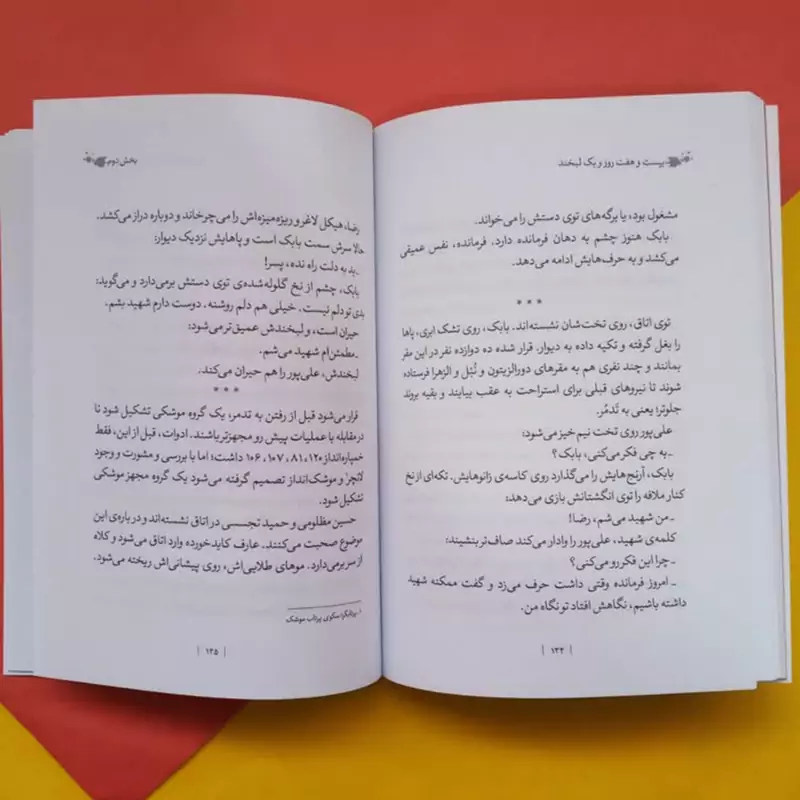 بیست و هفت روز و یک لبخند
مشغول بود، یا برگه‌های توی دستش را می‌خواند.
بابک هنوز چشم به دهان فرمانده دارد. فرمانده، نفس عمیقی
می‌کشد و به حرف‌هایش ادامه می‌دهد.
***
توی اتاق، روی تخت‌شان نشسته‌اند. بابک، روی تشک ابری، پاها
را بغل گرفته و تکیه داده به دیوار. قرار شده ده دوازده نفر در این مقر
بمانند و چند نفری هم به مقرهای دورالزیتون و نُبُل و الزهرا فرستاده
شوند تا نیروهای قبلی برای استراحت به عقب بیایند و بقیه بروند
جلوتر؛ یعنی به تَدمُر.
علی‌پور روی تخت نیم خیز می‌شود:
ـ به چی فکر می‌کنی، بابک؟
بابک، آرنج‌هایش را می‌گذارد روی کاسه‌ی زانوهایش. تکه‌ای از نخ
کنار ملافه را توی انگشتانش بازی می‌دهد:
ـ من شهید می‌شم، رضا!
کلمه‌ی شهید، علی‌پور را وادار می‌کند صاف‌تر بنشیند:
ـ چرا این فکر رو می‌کنی؟
ـ امروز فرمانده وقتی داشت حرف می‌زد و گفت ممکنه شهید
داشته باشیم، نگاهش افتاد تو نگاه من.
| ۱۳۴ |
بخش دوم
رضا، هیکل لاغر و ریزه‌میزه‌اش را می‌چرخاند و دوباره دراز می‌کشد.
حالا سرش سمت بابک است و پاهایش نزدیک دیوار:
ـ بد به دلت راه نده، پسر!
بابک، چشم از نخ گلوله‌شده‌ی توی دستش برمی‌دارد و می‌گوید:
بدی تو دلم نیست. خیلی هم دلم روشنه. دوست دارم شهید بشم.
حیران است، و لبخندش عمیق‌تر می‌شود:
ـ مطمئن‌ام شهید می‌شم.
لبخندش، علی‌پور را هم حیران می‌کند.
***
قرار می‌شود قبل از رفتن به تدمر، یک گروه موشکی تشکیل شود تا
در مقابله با عملیات پیش رو مجهزتر باشند. ادوات، قبل از این، فقط
خمپاره‌انداز ۱۲۰، ۸۱، ۱۰۷، ۱۰۶ داشت؛ اما با بررسی و مشورت و وجود
لانچر۱ و موشک‌انداز تصمیم گرفته می‌شود یک گروه مجهز موشکی
تشکیل شود.
حسین مظلومی و حمید تجسسی در اتاق نشسته‌اند و درباره‌ی این
موضوع صحبت می‌کنند. عارف کایدخورده وارد اتاق می‌شود و کلاه
از سر برمی‌دارد. موهای طلایی‌اش، روی پیشانی‌اش ریخته می‌شود.
۱. پرتابگر؛ سکوی پرتاب موشک
| ۱۳۵ |